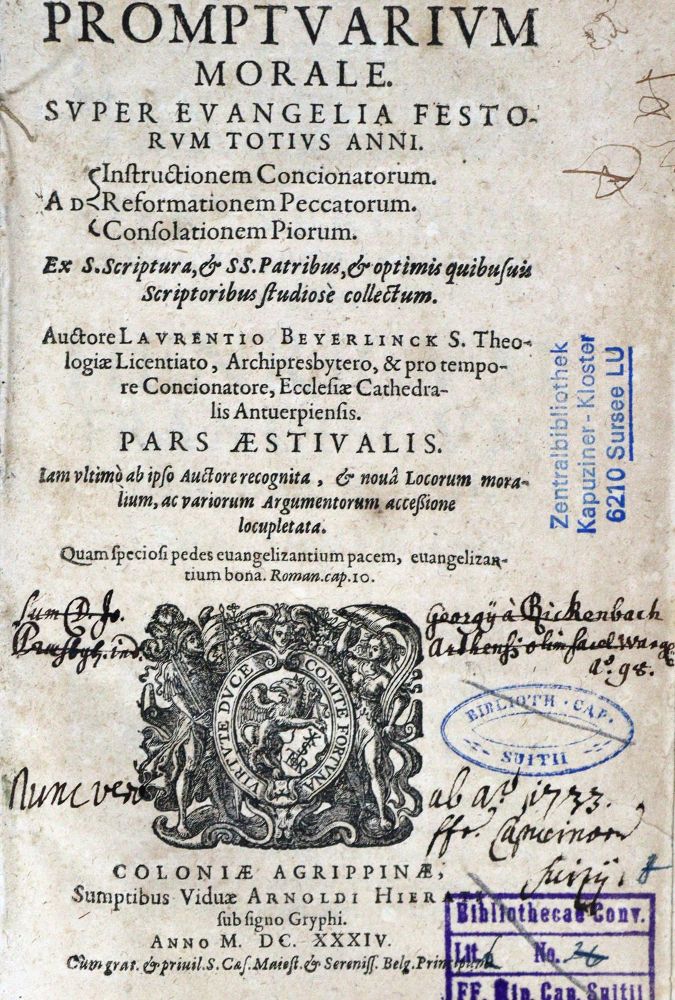 PROMPTVARIVM
MORALE.
SVPER EVANGELIA FESTO-
RVM TOTIVS ANNI.
AD
Inſtructionem Concionatorum.
Reformationem Peccatorum.
Conſolationem Piorum.
Ex S. Scriptura, & SS. Patribus, & optimis quibuſuis
Scriptoribus ſtudiosè collectum.
Auctore LAVRENTIO BEYERLINCK S. Theo-
logiæ Licentiato, Archipresbytero, & pro tempo-
re Concionatore, Eccleſiæ Cathedra-
lis Antuerpienſis.
PARS ÆSTIVALIS.
Iam vltimò ab ipſo Auctore recognita, & nouâ Locorum mora-
lium, ac variorum Argumentorum acceßione
locupletata.
Quam ſpecioſi pedes euangelizantium pacem, euangelizan-
tium bona. Roman. cap. 10.
Zentralbibliothek
Kapuziner-Kloster
6210 Sursee LU
Sum D. Jo.
Georgÿ à Rickenbach
VIRTVTE DVCE COMITE FORTVNA
BIBLIOTH. CAP.
SUITII
Nunc vero
ab aō. 1733.
COLONIÆ AGRIPPINÆ,
Sumptibus Viduæ ARNOLDI HIERATI
ſub ſigno Gryphi.
ANNO M. DC. XXXIV.
Cum grat. & priuil. S. Cæſ. Maieſt. & Sereniſſ. Belg. Principum
Bibliothecae Conv.
Lit. No. 26
FF. Min. Cap. Suitii